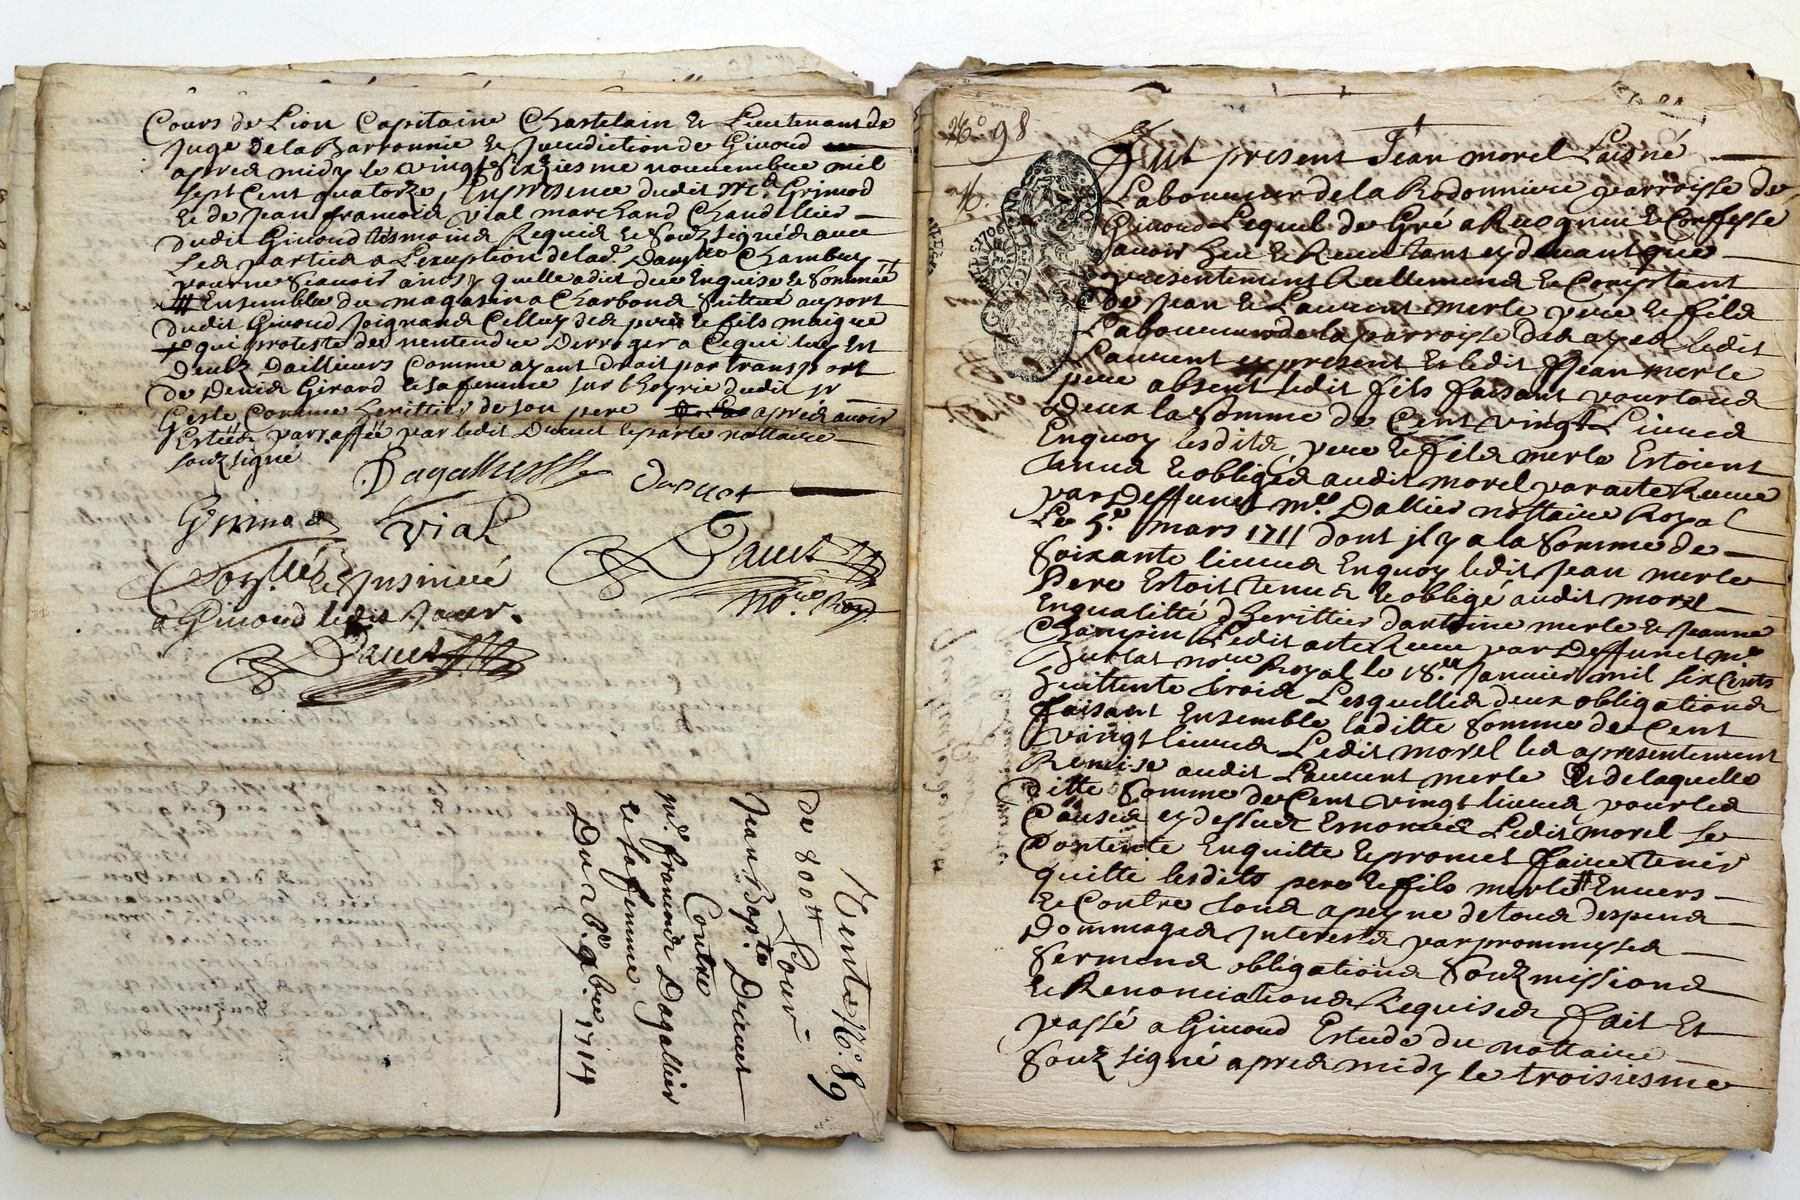 Cours de Lion Capitaine Chastelain et Lieutenant de
Juge de la Barronnie et Jurediction de Givord
apres midy le vingt sixiesme nouvembre mil
sept Cent quatorze En presence dudit Mre Grimod
et de Jean francois vial marchand Chandellier
dudit Givord tesmoins Requis et souz signés avec
les parties a L'exeption de lad.
pour ne scavoir ainsy quelle a dit de ce Enquise et sommée
# Ensemble du magasin a Charbons au port
dudit Givord Joignant Celluy des pere et fils maigre
qui proteste de n'entendre Derroger a Ce qui luy Est
deub D'ailleurs Comme ayant droit par transport
de Denis Girard et sa femme sur l'hoyrie dudit sr
Geste Comme herittier de son pere apres avoir
Estées parraffée par ledit Drevet et par le nottaire
souz signé
Dagallier Drevet
Grimod Vial
Davet
Nore Roy.
et Insinué
a Givord ledit Jour.
Davet
Vente No. 89
de 800 ## Pour
Jean Bapte. Drevet
Contre
mre. francois Dagallier
et sa femme
Du 26e. 9bre 1714
No. 98
Fut present Jean morel Laisné
Laboureur de la Rodonniere parroisse de
Givord Lequel de Gré a Recognu et Confesse
avoir heu et Receu tant cy devant que
presentement Reellement et Comptant
de Jean et Laurent merle pere et fils
Laboureurs de la parroisse ledit
Laurent cy present et ledit Jean merle
pere absent ledit fils faisant pour tous
deux la somme de Cent vingt Livres
Enquoy lesdits pere et fils merle Estoient
tenus et obliges audit morel par acte Receu
par Deffunct me. Dallier nottaire Royal
Le 5e. mars 1711 dont il y a la somme de
soixante livres Enquoy ledit Jean merle
Pere Estoit tenus et obligé audit morel
En qualitté d'herittier d'antoine merle et Jeanne
Champin Ledit acte Receu par Deffunct me
nore Royal le 18e. Janvier mil six Cents
huittente trois Lesquelles deux obligations
faisant Ensemble laditte somme de Cent
vingt livres Ledit morel les a presentement
Remise audit Laurent merle Et de laquelle
ditte somme de Cent vingt livres pour les
Causes cy dessus Enoncés Ledit morel se
Contente En quitte et promet faire tenir
quitte lesdits pere et fils merle # Envers
et Contre tous a peyne de tous despens
dommages Interests par prommesses
sermens obligations souzmissions
et Renonciations Requises fait Et
passé a Givord Estude du nottaire
souz signé apres midy le troisiesme